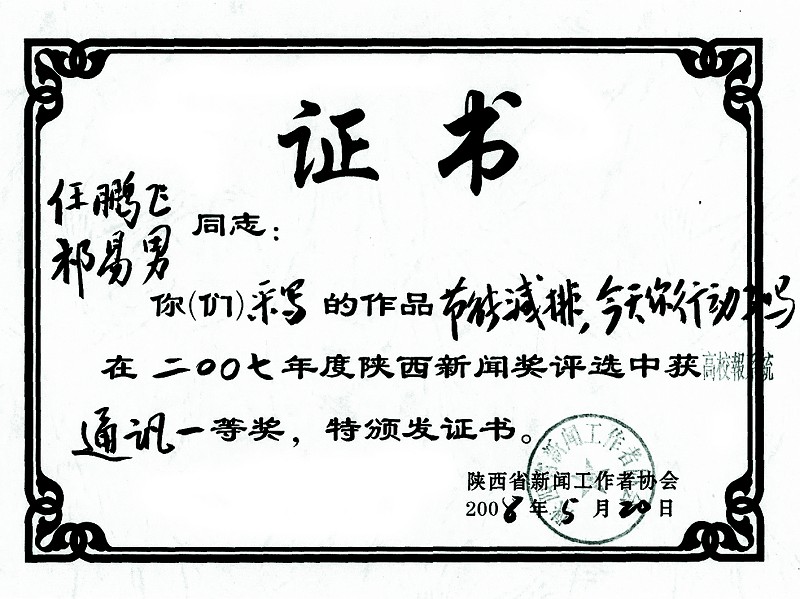 证书
任鹏飞
祁易男 同志：
你(们)采写的作品节能减排，今天你行动了吗
在二〇〇七年度陕西新闻奖评选中获高校報系统
通讯一等奖，特颁发证书。
陕西省新闻工作者协会
2008年5月20日
陕西省新闻工作者协会